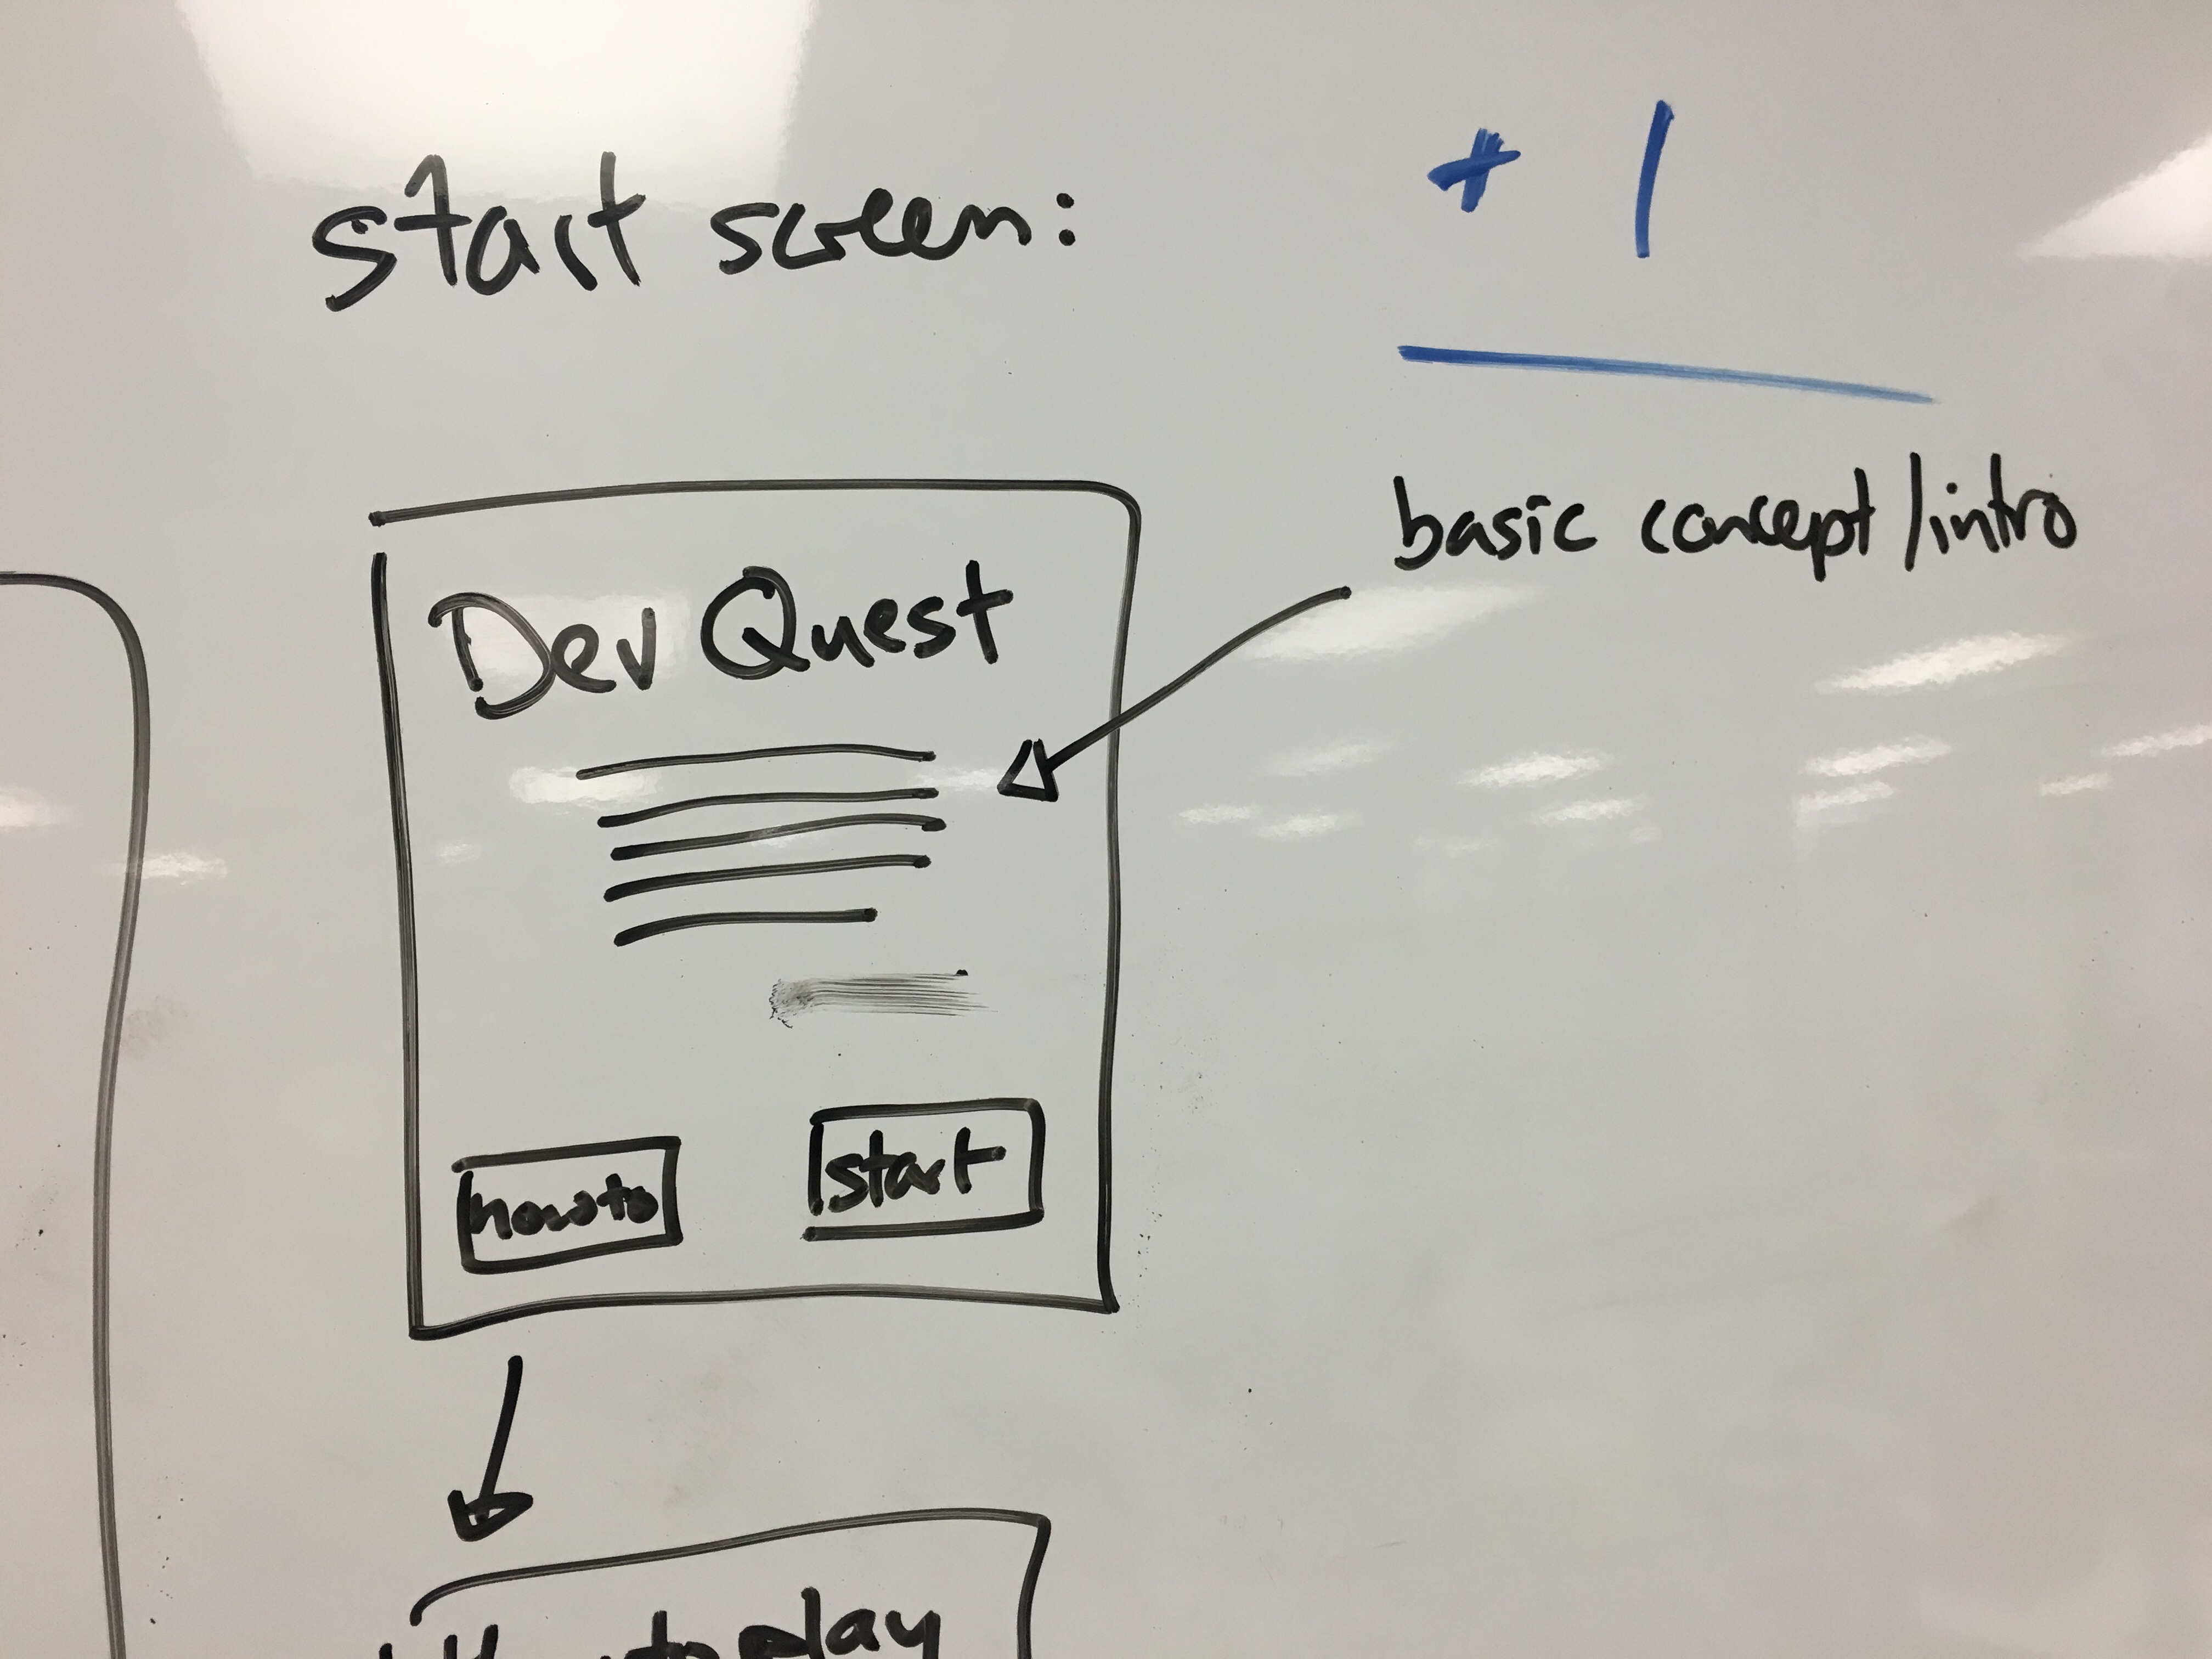 start screen:
+ 1
basic concept/intro
Dev Quest
howto
start
How to play